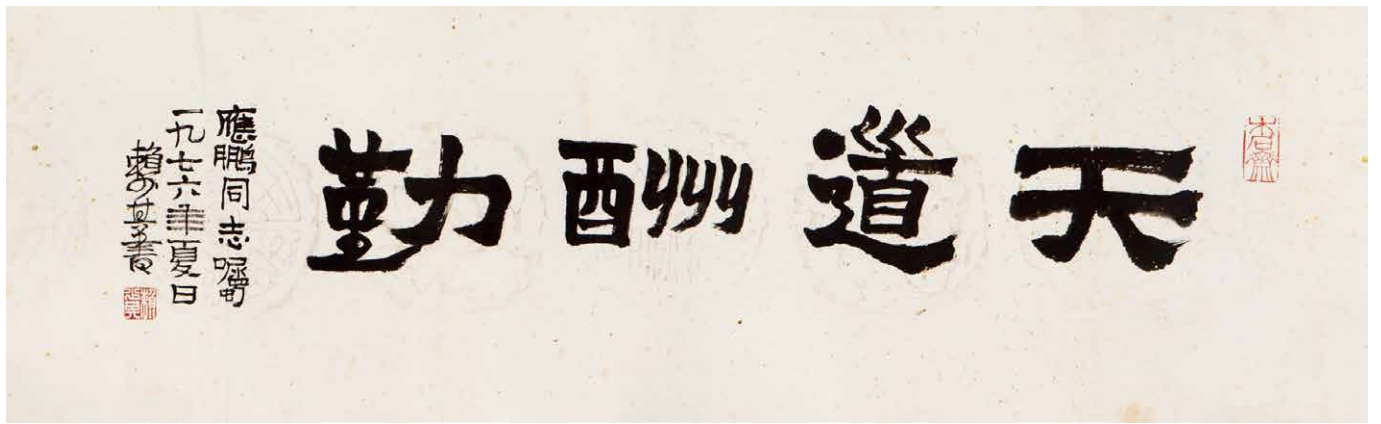 天道酬勤
應鵬同志囑
一九七六年夏日
賴少其書